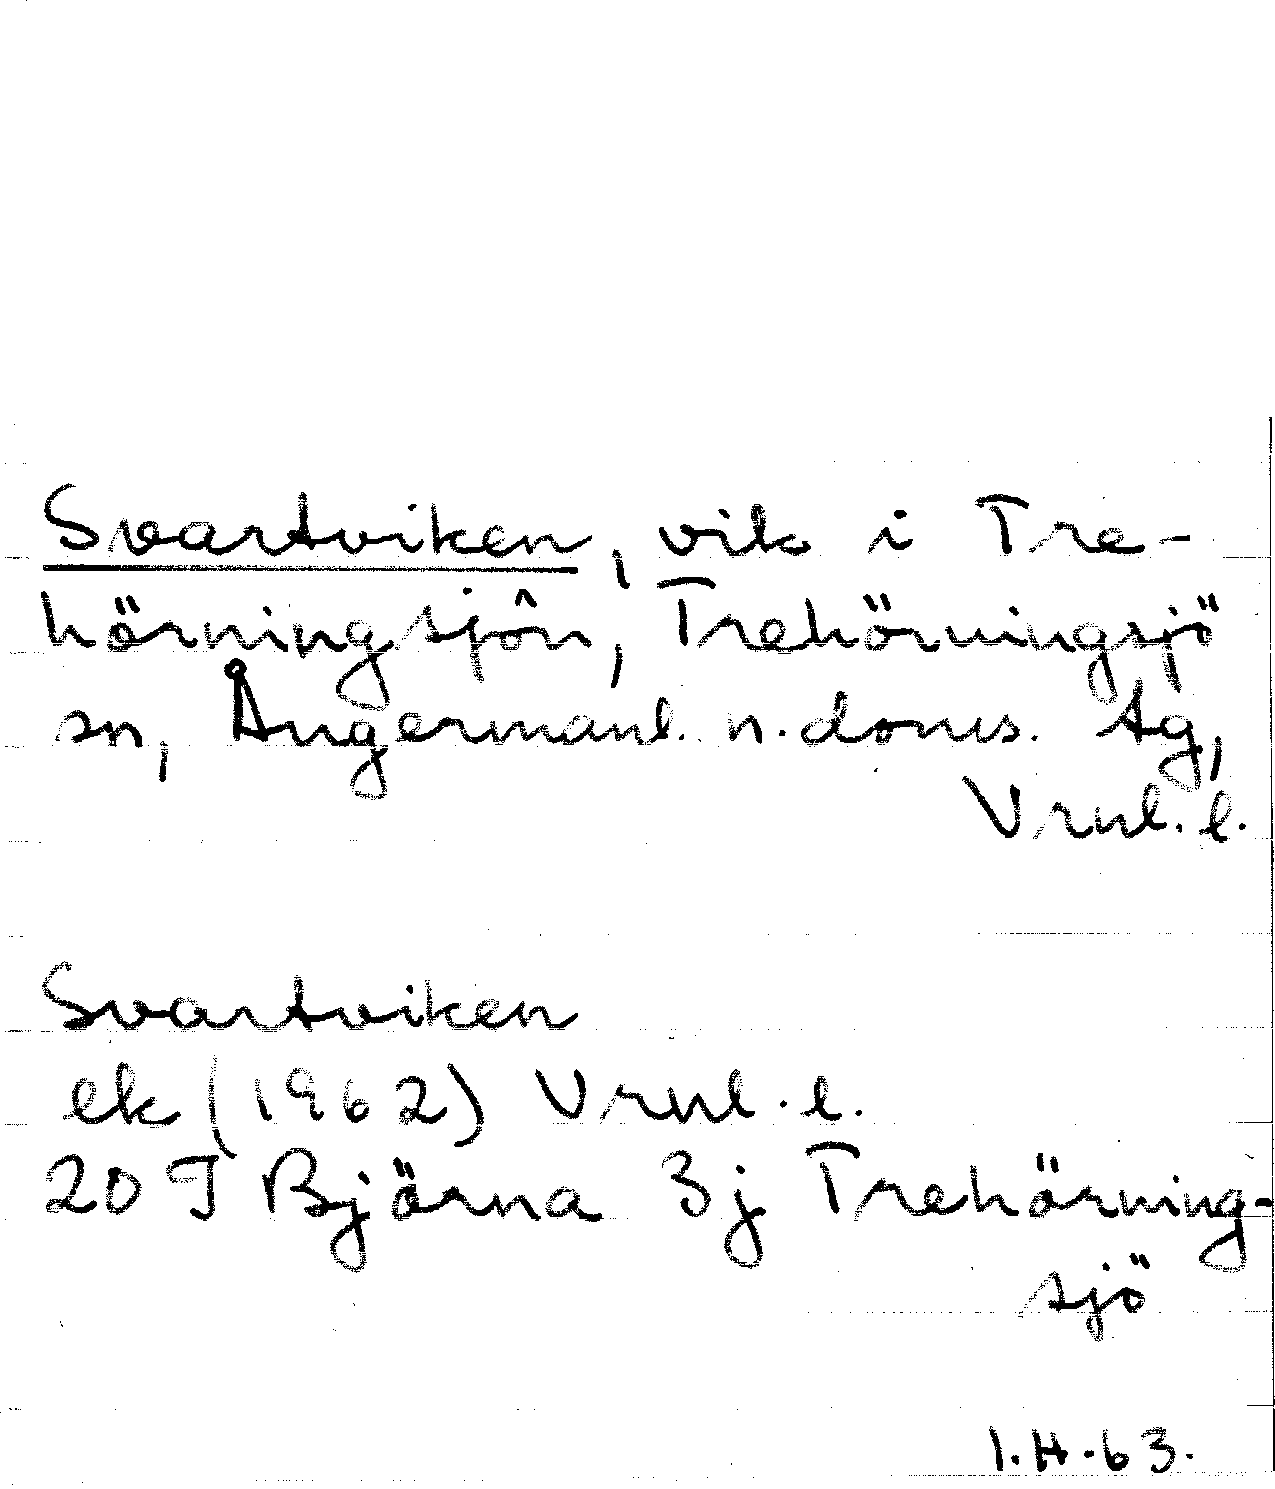 Svartviken, vik i Tre-
hörningsjön, Trehörningsjö
sn, Ångermanl. n. doms. tg,
Vrnl. l.
Svartviken
ek (1962) Vrnl. l.
20 I Björna 3j Trehörning-
sjö
I.H.63.